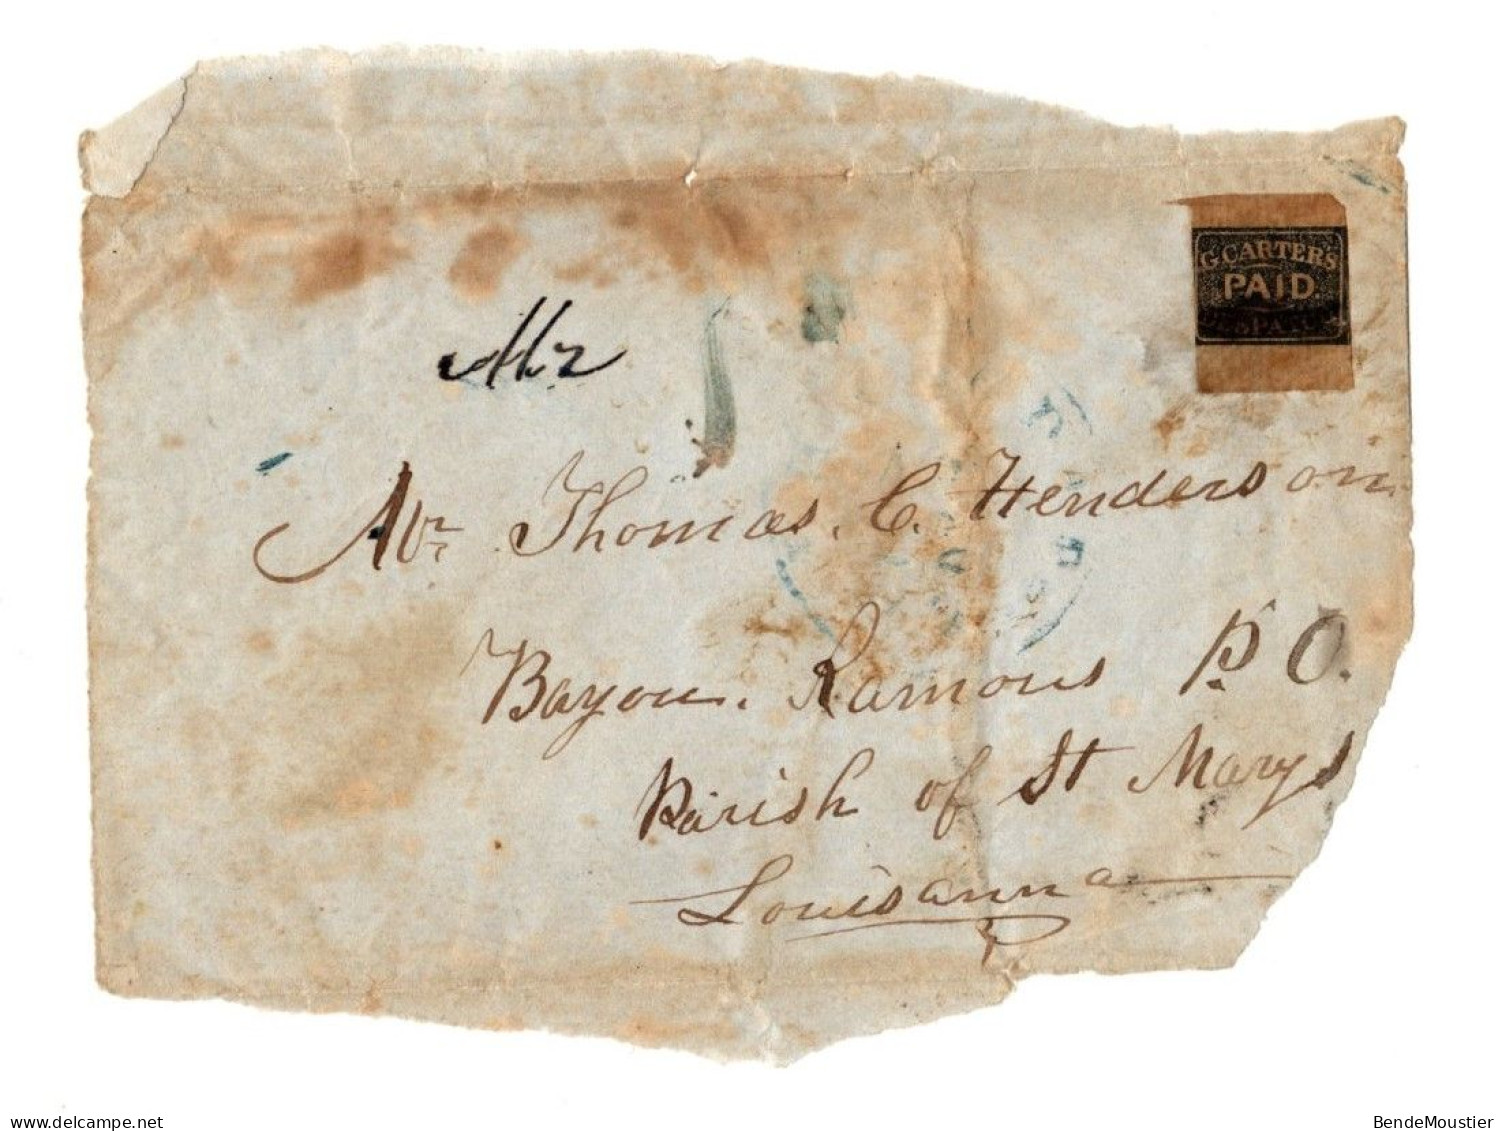 G. CARTER'S
PAID.
Mr
Mr Thomas. C. Henderson
Bayou. Ramous P. O.
Parish of St Marys
Louisanna
delcampe.net
BendeMoustier